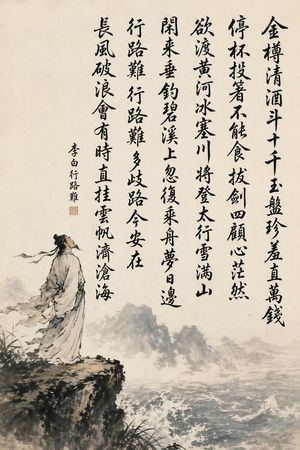 金樽清酒斗十千玉盤珍羞直萬錢
停杯投箸不能食拔劍四顧心茫然
欲渡黃河冰塞川將登太行雪滿山
閑來垂釣碧溪上忽復乘舟夢日邊
行路難行路難多歧路今安在
長風破浪會有時直挂雲帆濟滄海
李白行路難